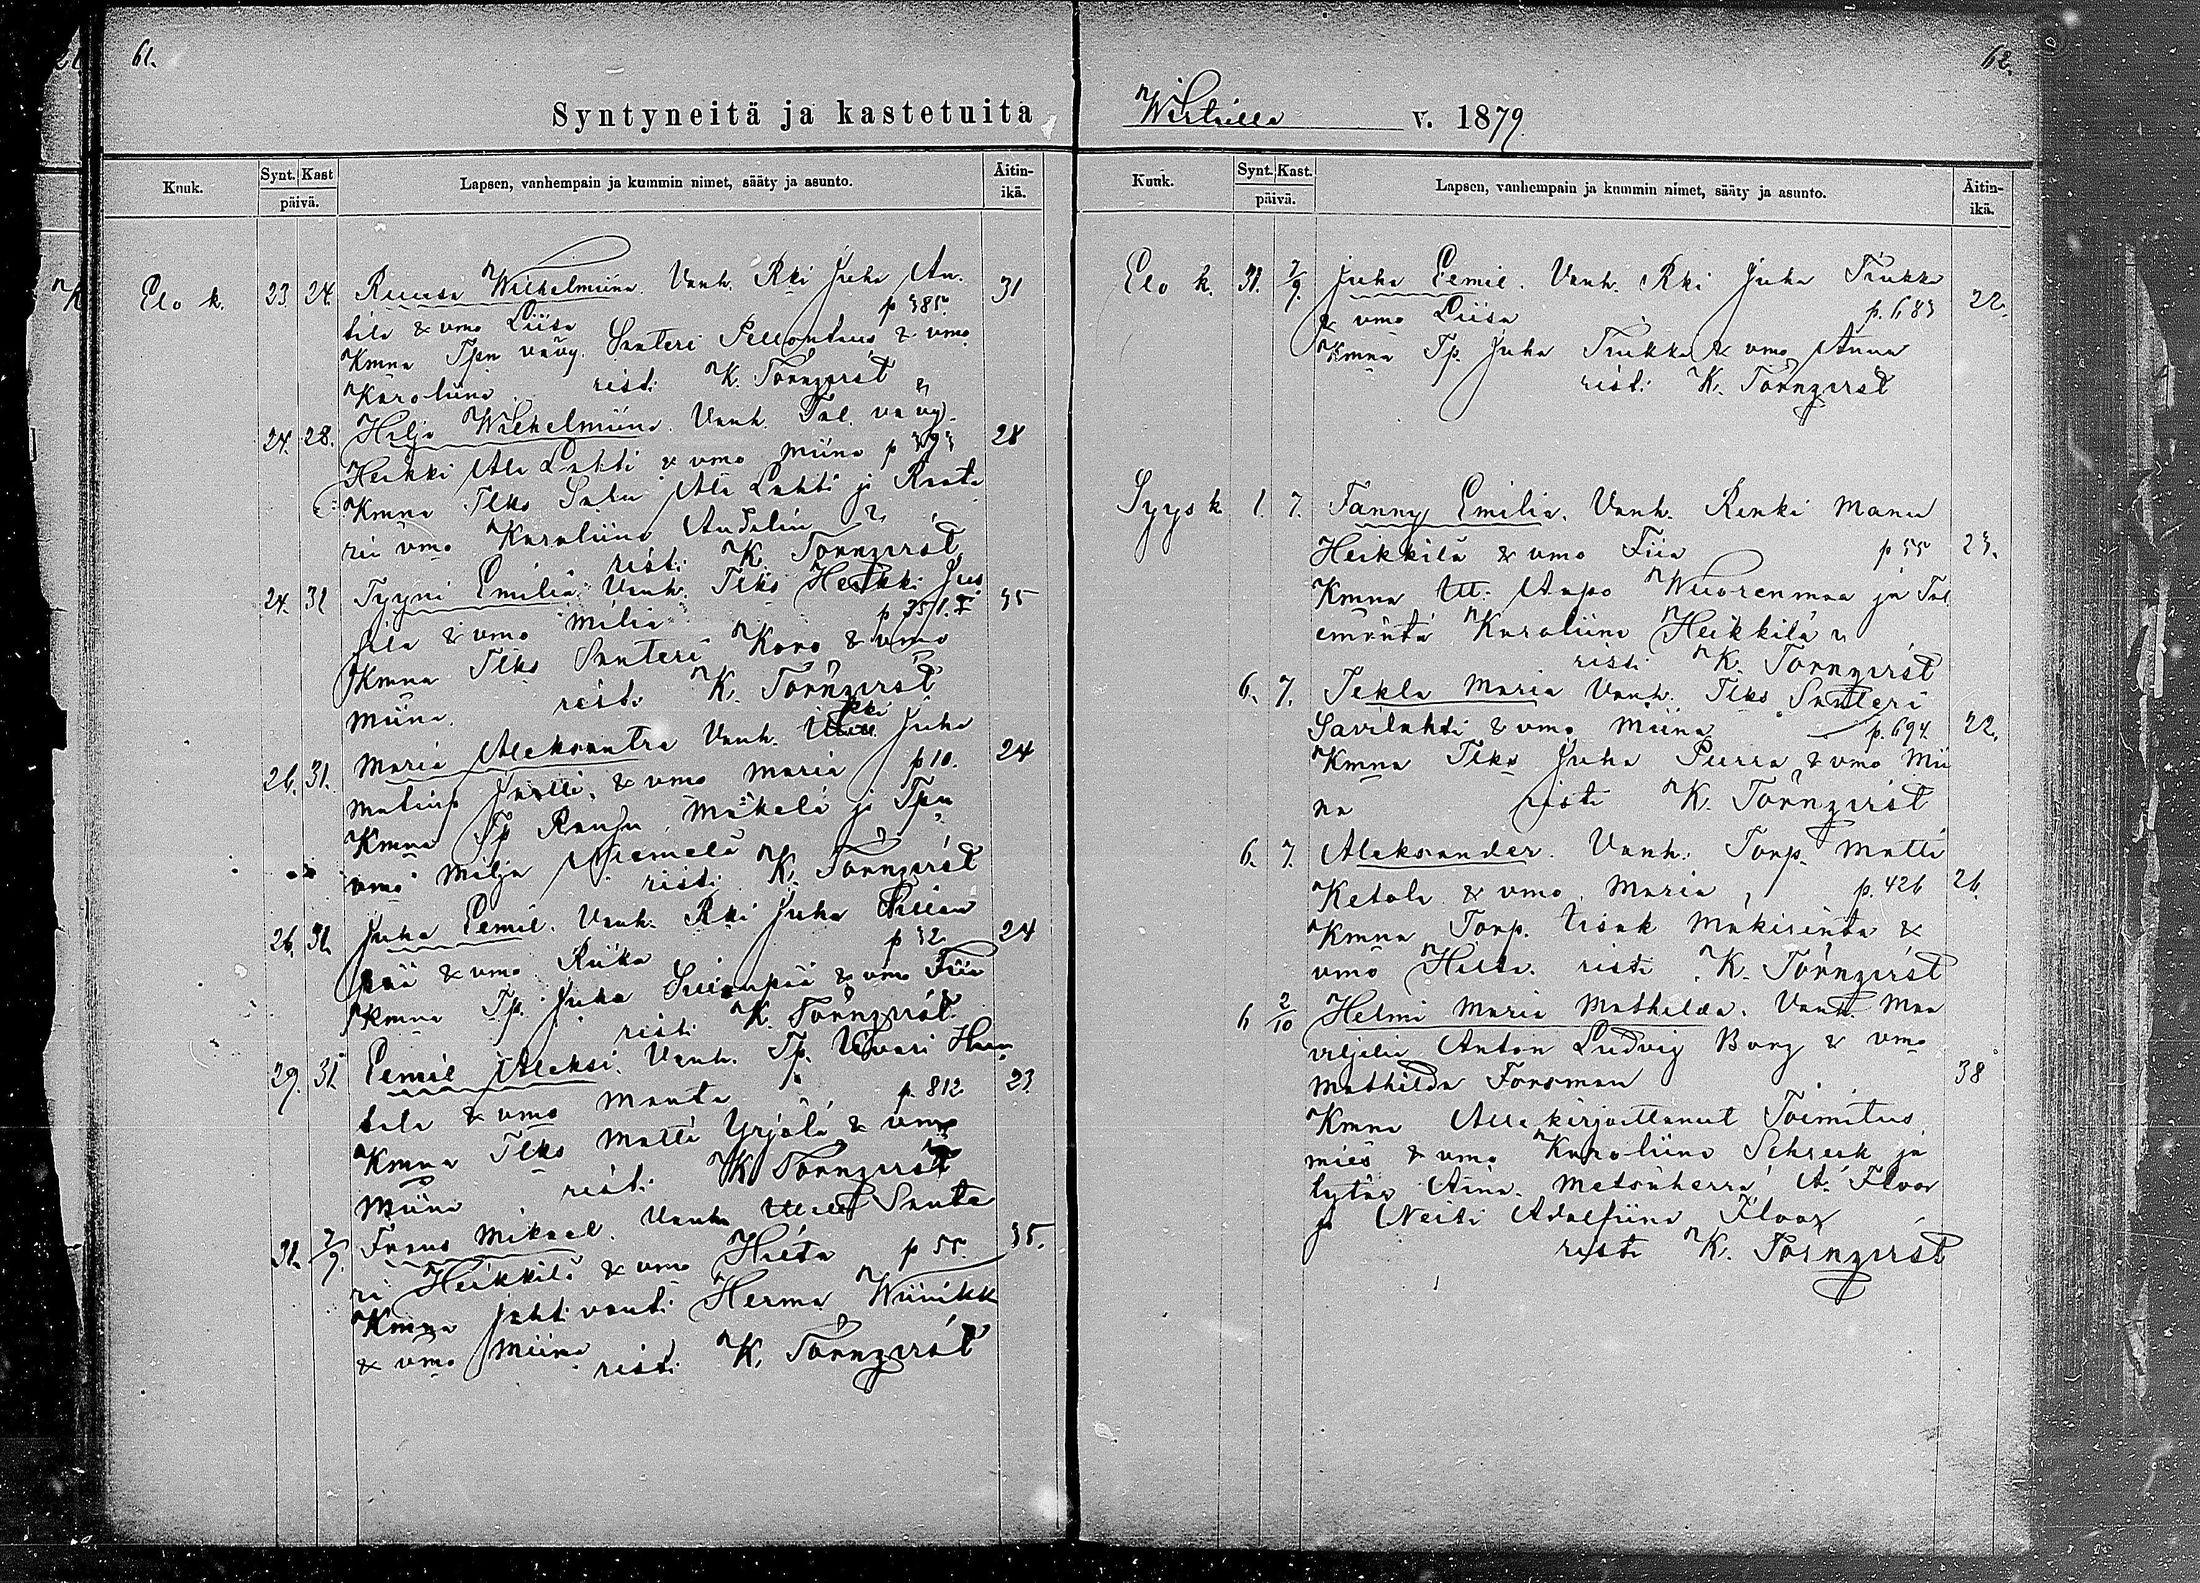 61.
Syntyneitä ja kastetuita
Kuuk.
Synt. Kast
päivä.
Lapsen, vanhempain ja kummin nimet, sääty ja asunto.
Äitin-
ikä.
Elo k. 23 24. Ruusa Wilhelmiina. Vanh. Rki Juha An- 31
tila & vmo Liisa p 385.
Kmna Tpn vävy. Santeri & vmo
Karoliina risti K. Törnqvist
24. 28. Hilja Wilhelmiina. Vanh. Tal. vävy 28
Heikki Ala Lahti & vmo Miina p 393
Kmna Tlks Ala Lahti ja Raata
rii vmo Karoliina Andelin
risti K. Törnqvist
24. 31 Tyyni Emilia. Vanh. Tlks Heikki Jus 35
sila & vmo Milia p 351. I
Kmna Tlks Santeri Kono & vmo
Miina. risti K. Törnqvist
26. 31. Maria Aleksantra Vanh. Juha 24
& vmo Maria p 10.
Kmna Tp Mäkelä ja Tpn
vmo Milja Niemelä
risti K. Törnqvist
26. 31. Juha Eemil. Vanh. Rki Juha 24
pää & vmo Riika p 32
Kmna Tp. Juha & vmo Fiia
risti K. Törnqvist
29. 31 Eemil Aleksi. Vanh. Tp. Han 23
tala & vmo Manta p. 812
Kmna Tlks Matti Yrjälä & vmo
Miina risti K. Törnqvist
31. 7/9. Frans Mikael. Vanh. Sante 35.
ri Heikkilä & vmo Heta p 55.
Kmna Jahti vouti Herma Wiinikk
& vmo Miina
risti K. Törnqvist
62.
v. 1879.
Kuuk.
Synt. Kast.
päivä.
Lapsen, vanhempain ja kummin nimet, sääty ja asunto.
Äitin-
ikä.
Elo k. 31. 7/9. Juha Eemil. Vanh. Rki Juha Tiukka
& vmo Liisa p. 683 22.
Kmna Tp. Juha Tiukka & vmo Anna
risti K. Törnqvist
Syys k 1. 7. Fanny Emilia. Vanh. Renki Manu
Heikkilä & vmo Fiia p 55 23.
Kmna Itl. Aapo Wuorenmaa ja Tal.
emäntä Karoliina Heikkilä
risti K. Törnqvist
6. 7. Tekla Maria Vanh. Tlks Santeri
Savilahti & vmo Miina p. 694. 22.
Kmna Tlks Juha Purra & vmo Mii
na risti K. Törnqvist
6. 7. Aleksander. Vanh. Torp. Matti
Ketola & vmo Maria p. 426 26.
Kmna Torp. Iisak Mäkirinta &
vmo Hilta. risti K. Törnqvist
6 2/10 Helmi Maria Mathilda. Vanh. Maa
viljeliä Anton Ludvig Borg & vmo
Mathilda Forsman 38
Kmna Alla kirjoittanut Toimitus
mies & vmo Karoliina Schreck ja
tytär Aina. Metsäherra A. Floor
ja Neiti Adolfiina Floor
risti K. Törnqvist